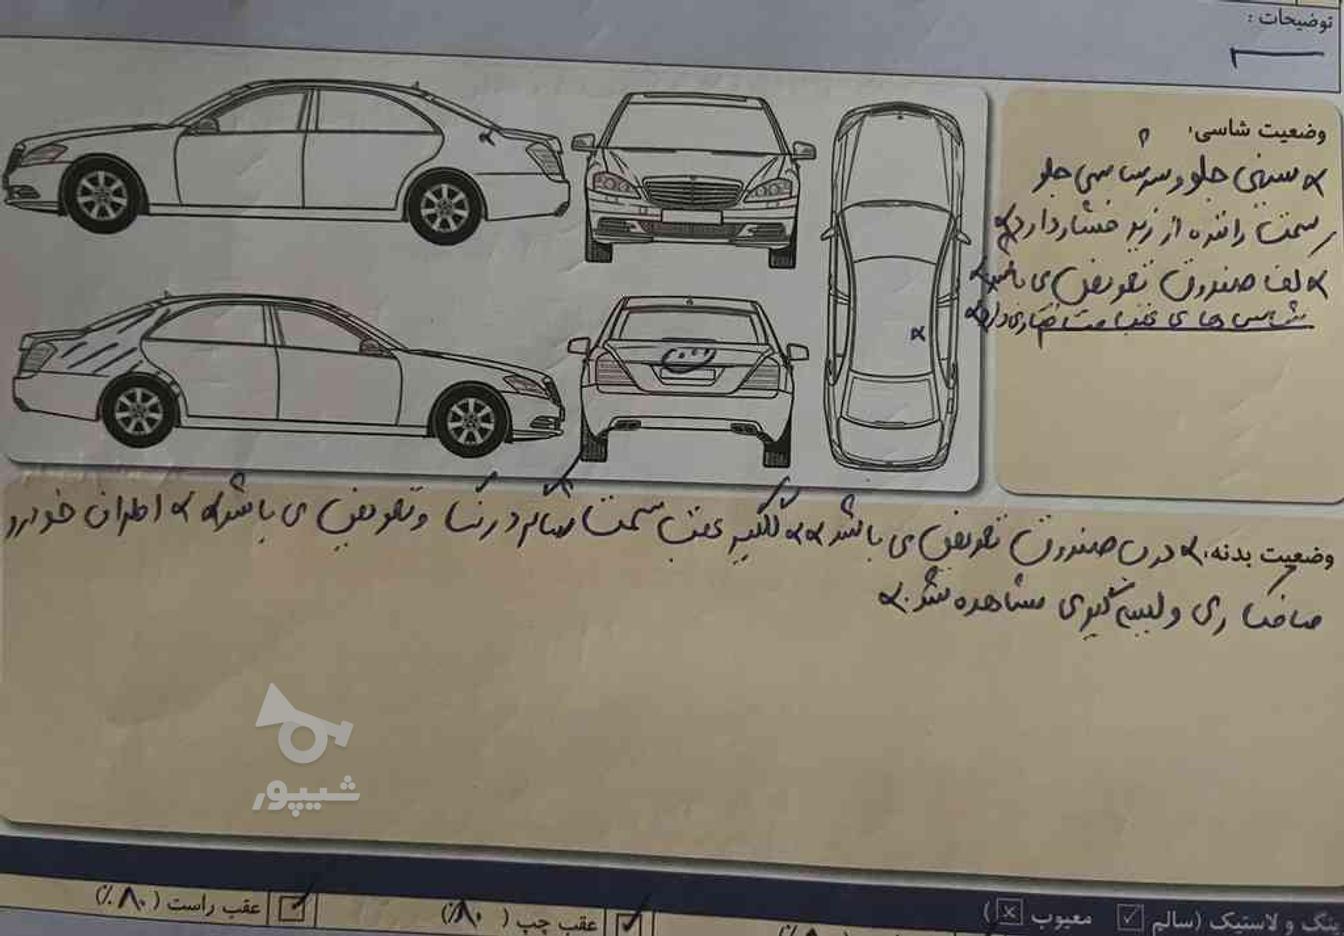 توضیحات :
وضعیت شاسی:
سینی جلو و سرشاسی جلو
سمت راننده از زیر فشار دارد
کف صندوق تعویض می باشد
شاسی های عقب
وضعیت بدنه: درب صندوق تعویض می باشد گلگیر عقب سمت شاگرد رنگ و تعویض می باشد اطراف خودرو
صافکاری و لیسه گیری مشاهده شد.
شیپور
رنگ و لاستیک (سالم ☑ معیوب ☒)
عقب چپ (۸۰٪)
عقب راست (۸۰٪)